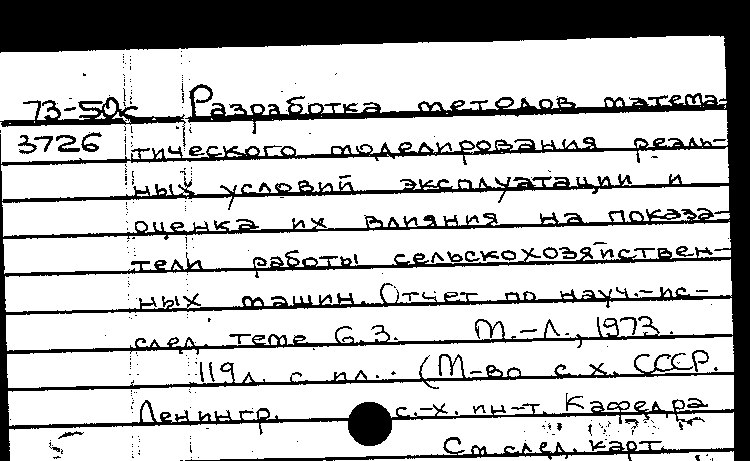 73-50с Разработка методов матема-
3726 тического моделирования реаль-
ных условий эксплуатации и
оценка их влияния на показа-
тели работы сельскохозяйствен-
ных машин. Отчет по науч.-ис-
след. теме 6.3. М.-Л., 1973.
119л. с ил.. (М-во с. х. СССР.
Ленингр. с.-х. ин-т. Кафедра
См след. карт.